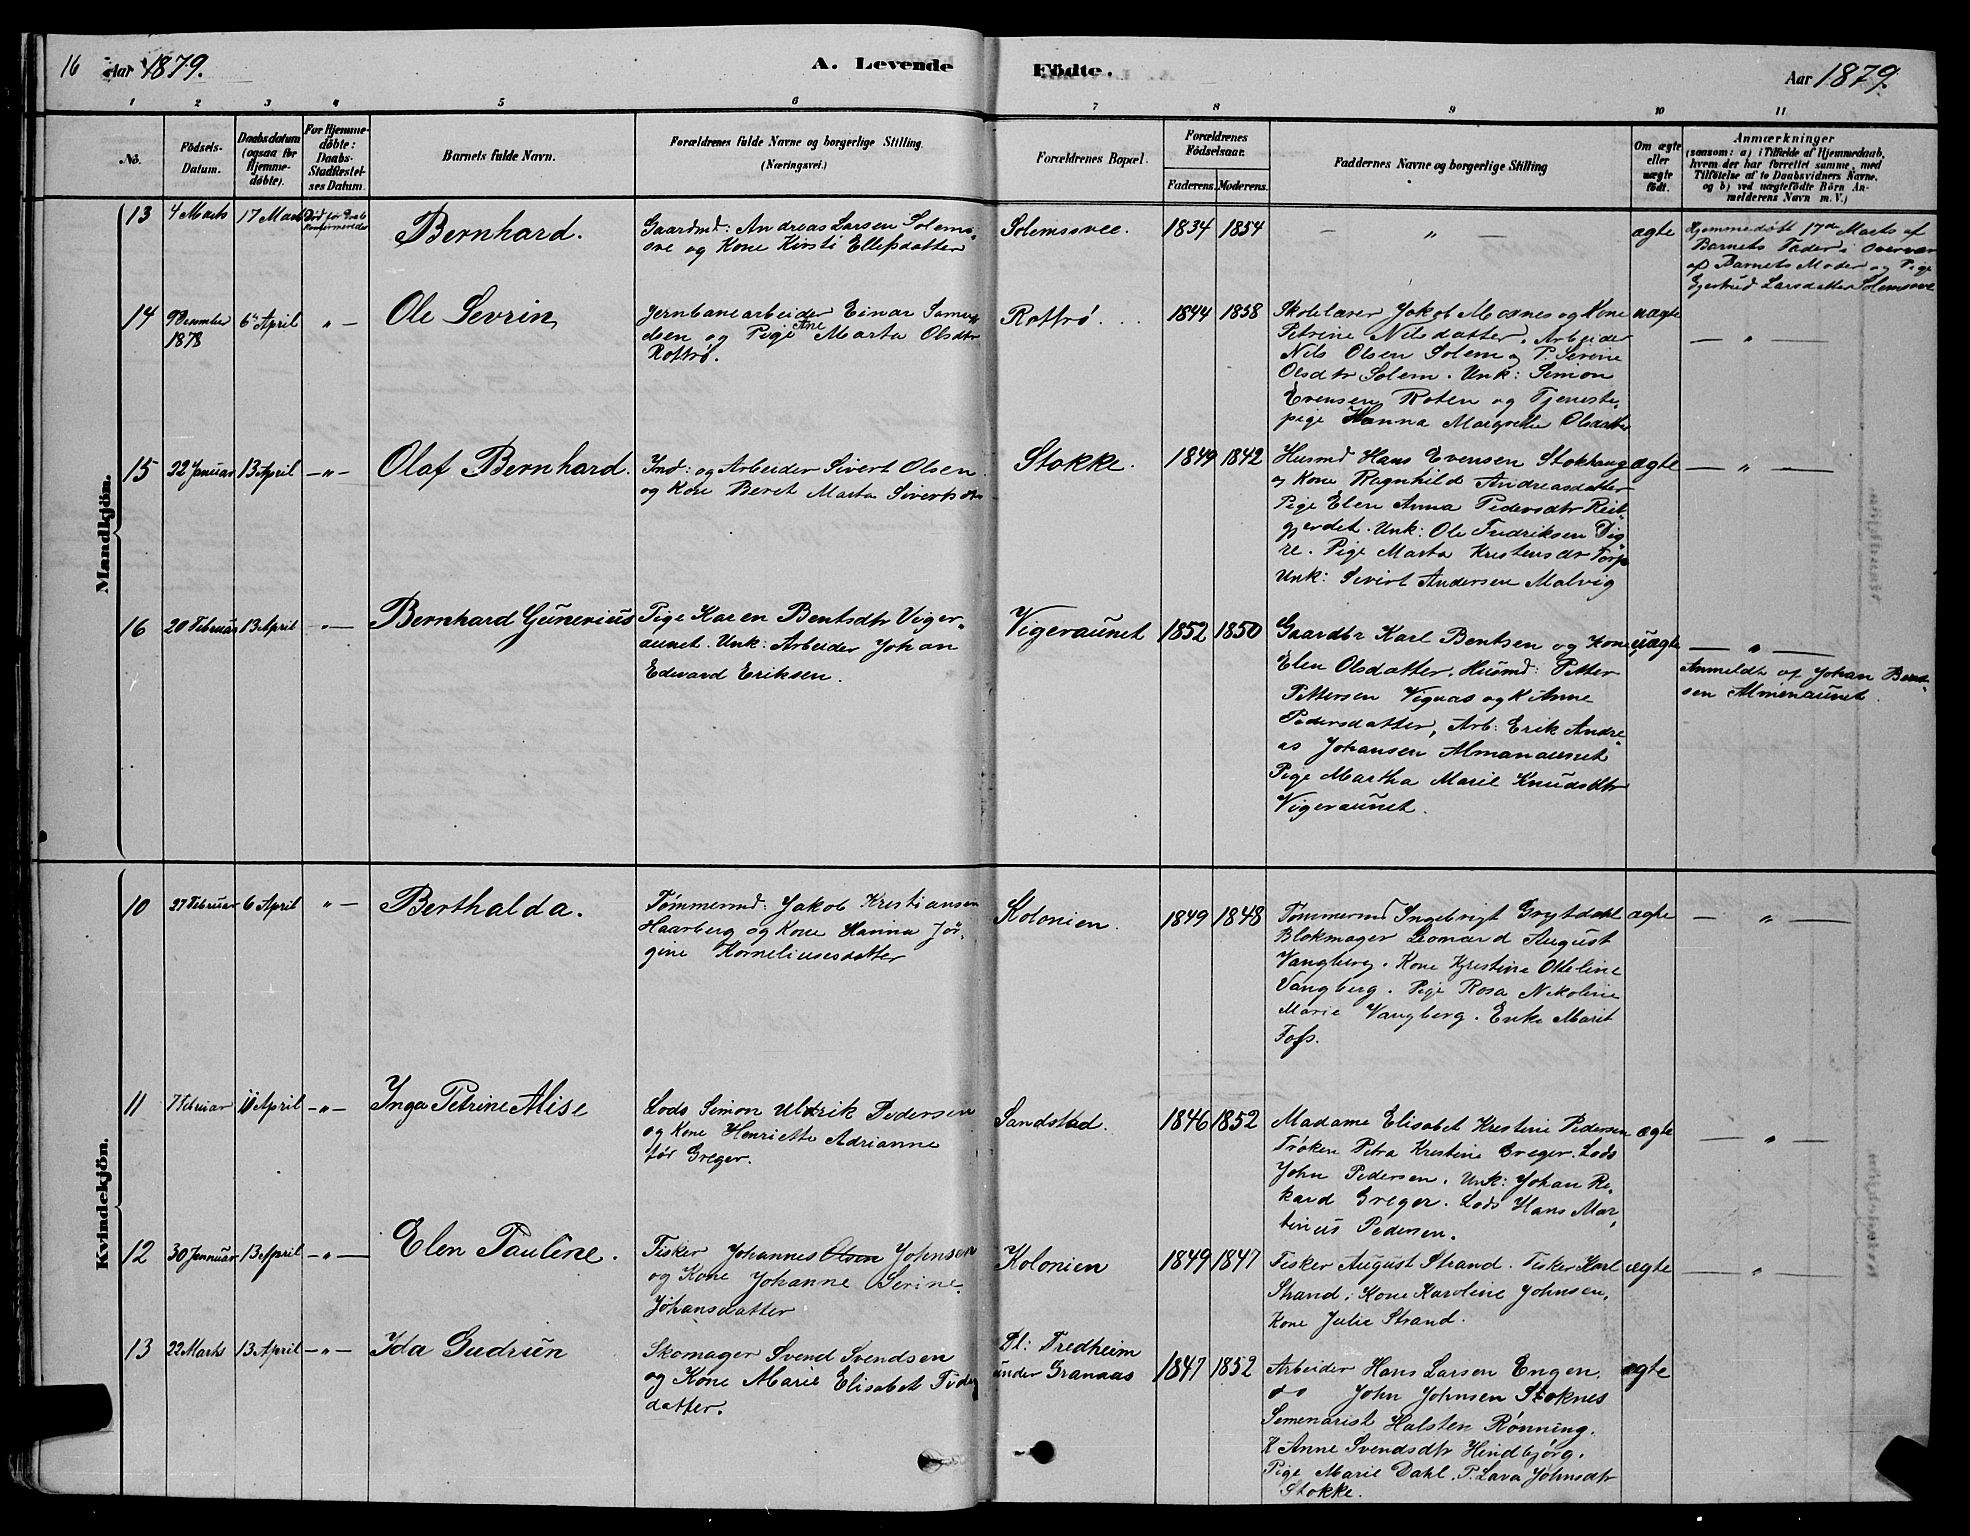 16 Aar 1879.
A. Levende Födte.
Aar 1879.
1 2 3 4 5 6 7 8 9 10 11
No.
Födsels-
Datum.
Daabsdatum
(ogsaa for
Hjemme-
döbte).
For Hjemme-
döbte:
Daabs-
Stadfæstel-
ses Datum.
Barnets fulde Navn.
Forældrenes fulde Navne og borgerlige Stilling
(Næringsvei.)
Forældrenes Bopæl.
Forældrenes
Födselsaar.
Faderens. Moderens.
Faddernes Navne og borgerlige Stilling
Om ægte
eller
uægte
født.
Anmærkninger
(saasom: a) i Tilfælde af Hjemmedaab,
hvem der har forrettet samme, med
Tilföielse af to Daabsvidners Navne,
og b) ved uægtefödte Börn An-
melderens Navn m. V.)
Mandkjön.
13
4 Marts
17 Marts
Död før Daab
Bernhard.
Gaardmd: Andreas Larsen Solems-
ove og Kone Kirsti Ellefsdatter
Solemsovee.
1834 1854
— „ —
ægte
Hjemmedöbt 17de Marts af
Barnets Fader i Overvær
af Barnets Moder og Pige
Gjertrud Larsdatter Solemsove
14
9 Desember
1878
6te April
„ —
Ole Sevrin
Jernbanearbeider Einar
dsen og Pige Ane Marta Olsdtr
Rottrö.
Rottrö. . .
1844 1858
Skolelærer Jakob Moxnes og Kone
Petrine Nilsdatter. Arbeider
Nils Olsen Solem og P. Serine
Olsdtr Solem. Unk: Simon
Evensen Roten og Tjeneste-
pige Hanna Margrethe Olsdatter
uægte
— „ —
15
22 Januar
13 April
— „ —
Olaf Bernhard.
Ind: og Arbeider Sivert Olsen
og Kone Beret Marta Sivertsdtr
Stokke.
1849 1842
Husmd Hans Evensen Stokhaug
og Kone Ragnhild Andreasdatter
Pige Elen Anna Pedersdtr Reit-
gjerdet. Unk: Ole Fredriksen Dig-
re. Pige Marta Kristensdr Torp
Unk: Sivert Andersen Malvig
ægte
— „ —
16
20 Februar
13 April
„ —
Bernhard Gunerius
Pige Karen Bentsdtr Viger-
aunet. Unk: Arbeider Johan
Edevard Eriksen.
Vigeraunet
1852 1850
Gaardbr Karl Bentsen og Kone
Elen Olsdatter. Husmd: Petter
Pettersen Vignas og K Anne
Pedersdatter, Arb: Erik Andre-
as Johansen Almanaunet
Pige Martha Marie Knudsdtr
Vigeraunet.
uægte
— „ —
Anmeldt af Johan Bent-
sen Almenaunet.
Kvindekjön.
10
27 Februar
6 April
„ —
Berthalda.
Tømmermd: Jakob Kristiansen
Haarberg og Kone Hanna Jör-
gine Korneliusesdatter
Kolonien.
1849 1848
Tømmermd Ingebrigt Grytdahl
Blokmager Leonard August
Vangberg. Kone Kjrestine Otteline
Vangberg. Pige Rosa Nikoline
Marie Vangberg. Enke Marit
Fofs.
ægte
— „ —
11
7 Februar
11 April
— „ —
Inga Petrine Alise
Lods Simon Uldrik Pedersen
og Kone Henriette Adrianne
før Greger.
Sandstad.
1846 1852
Madame Elisabet Kristine Pedersen
Frøken Petra Kristine Greger. Lods
John Pedersen. Unk: Johan Re-
kard Greger. Lods Hans Mar-
tinius Pedersen.
ægte
— „ —
12
30 Januar
13 April
— „ —
Elen Pauline.
Fisker Johannes Olsen Johnsen
og Kone Johanne Serine
Johansdatter
Kolonien
1849 1847
Fisker August Strand. Fisker Karl
Strand. Kone Karoline Johnsen.
Kone Julie Strand.
ægte
— „ —
13
22 Marts
13 April
— „ —
Ida Gudrun
Skomager Svend Svendsen
og Kone Marie Elisabet
datter.
Pl: Fredheim
under Granaas
1847 1852
Arbeider Hans Larsen Engen.
do John Johnsen Stoknes
Semenarist Halsten Rönning.
K Anne Svendsdtr Hindbjörg.
Pige Marie Dahl. P. Lava Johnsdtr
Stokke.
ægte